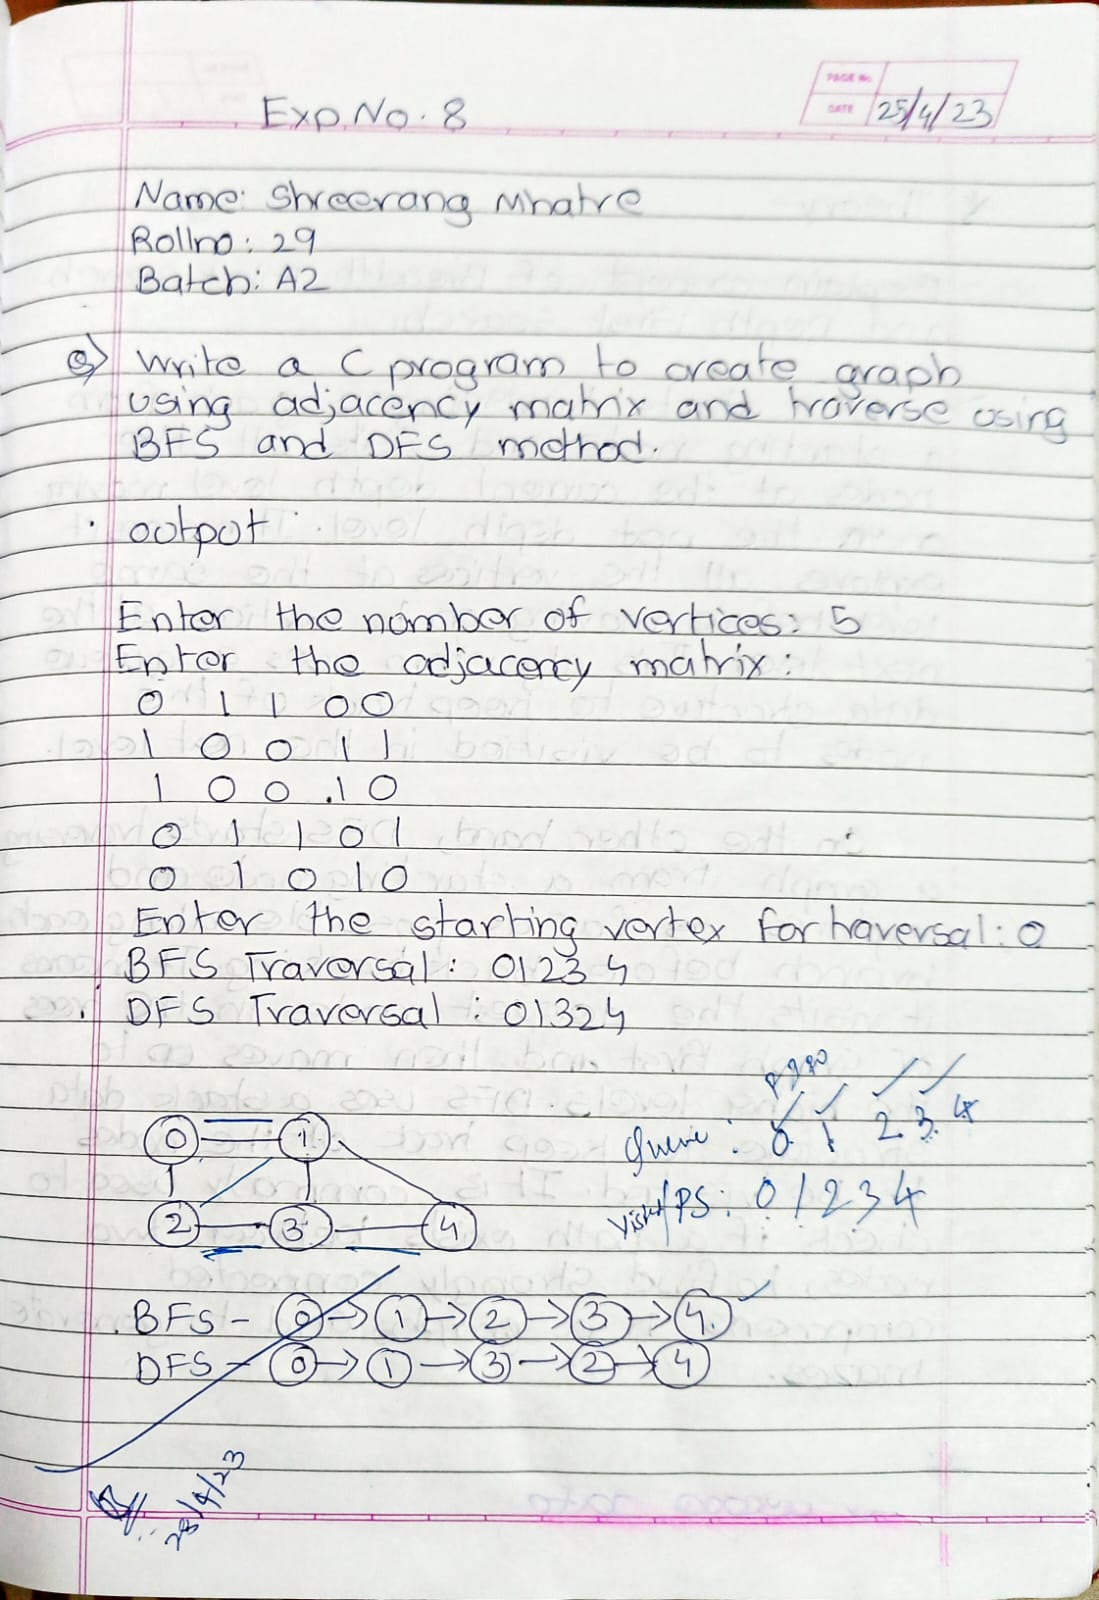 PAGE No.
DATE 25/4/23
Exp. No. 8
Name: Shreerang Mhatre
Rollno: 29
Batch: A2
Q) Write a C program to create graph
using adjacency matrix and traverse using
BFS and DFS method.
output
Enter the number of vertices: 5
Enter the adjacency matrix:
0 1 1 0 0
1 0 0 1 1
1 0 0 1 0
0 1 1 0 1
0 1 0 1 0
Enter the starting vertex for traversal: 0
BFS Traversal: 01234
DFS Traversal: 01324
Queue: 0 1 2 3 4
0 1
Visit/PS: 0 1 2 3 4
2 3 4
BFS - 0 → 1 → 2 → 3 → 4
DFS - 0 → 1 → 3 → 2 → 4
28/4/23